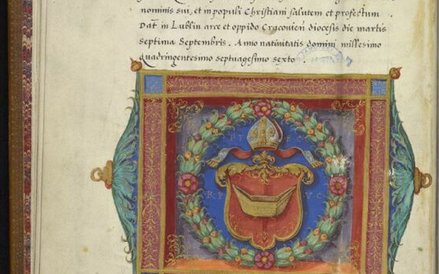 nominis sui, et in populi Christiani salutem et profectum.
Dat in Lublin arce et oppido Cracovien diocesis die martis
septima Septembris. Anno natiuitatis domini millesimo
quadringentesimo septuagesimo sexto